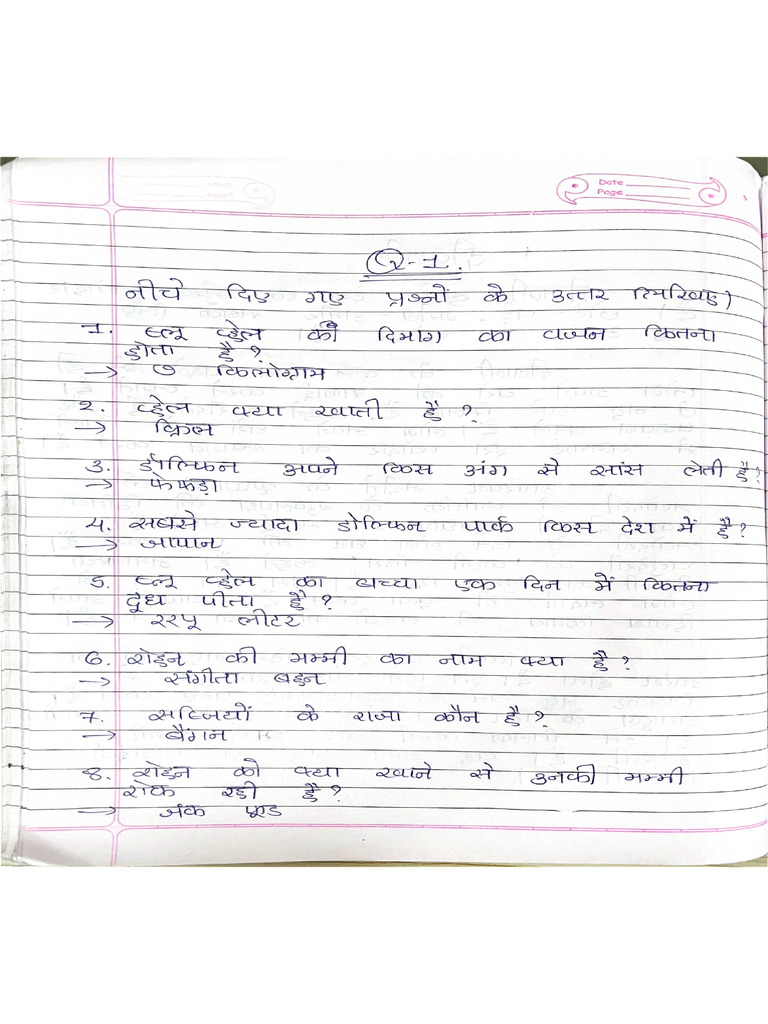 Date
Page
Q-1.
नीचे दिए गए प्रश्नों के उत्तर लिखिए)
1. ब्लू व्हेल की दिमाग का वजन कितना
होता है?
→ ७ किलोग्राम
2. व्हेल क्या खाती है?
→ क्रिल
3. डॅाल्फिन अपने किस अंग से सांस लेती है?
→ फेफड़ा
4. सबसे ज्यादा डोल्फिन पार्क किस देश में है?
→ जापान
5. ब्लू व्हेल का बच्चा एक दिन में कितना
दूध पीता है?
→ २२५ लीटर
6. रोहन की मम्मी का नाम क्या है?
→ संगीता बहन
7. सब्जियों के राजा कौन है?
→ बैंगन
8. रोहन को क्या खाने से उनकी मम्मी
रोक रही है?
→ जंक फूड